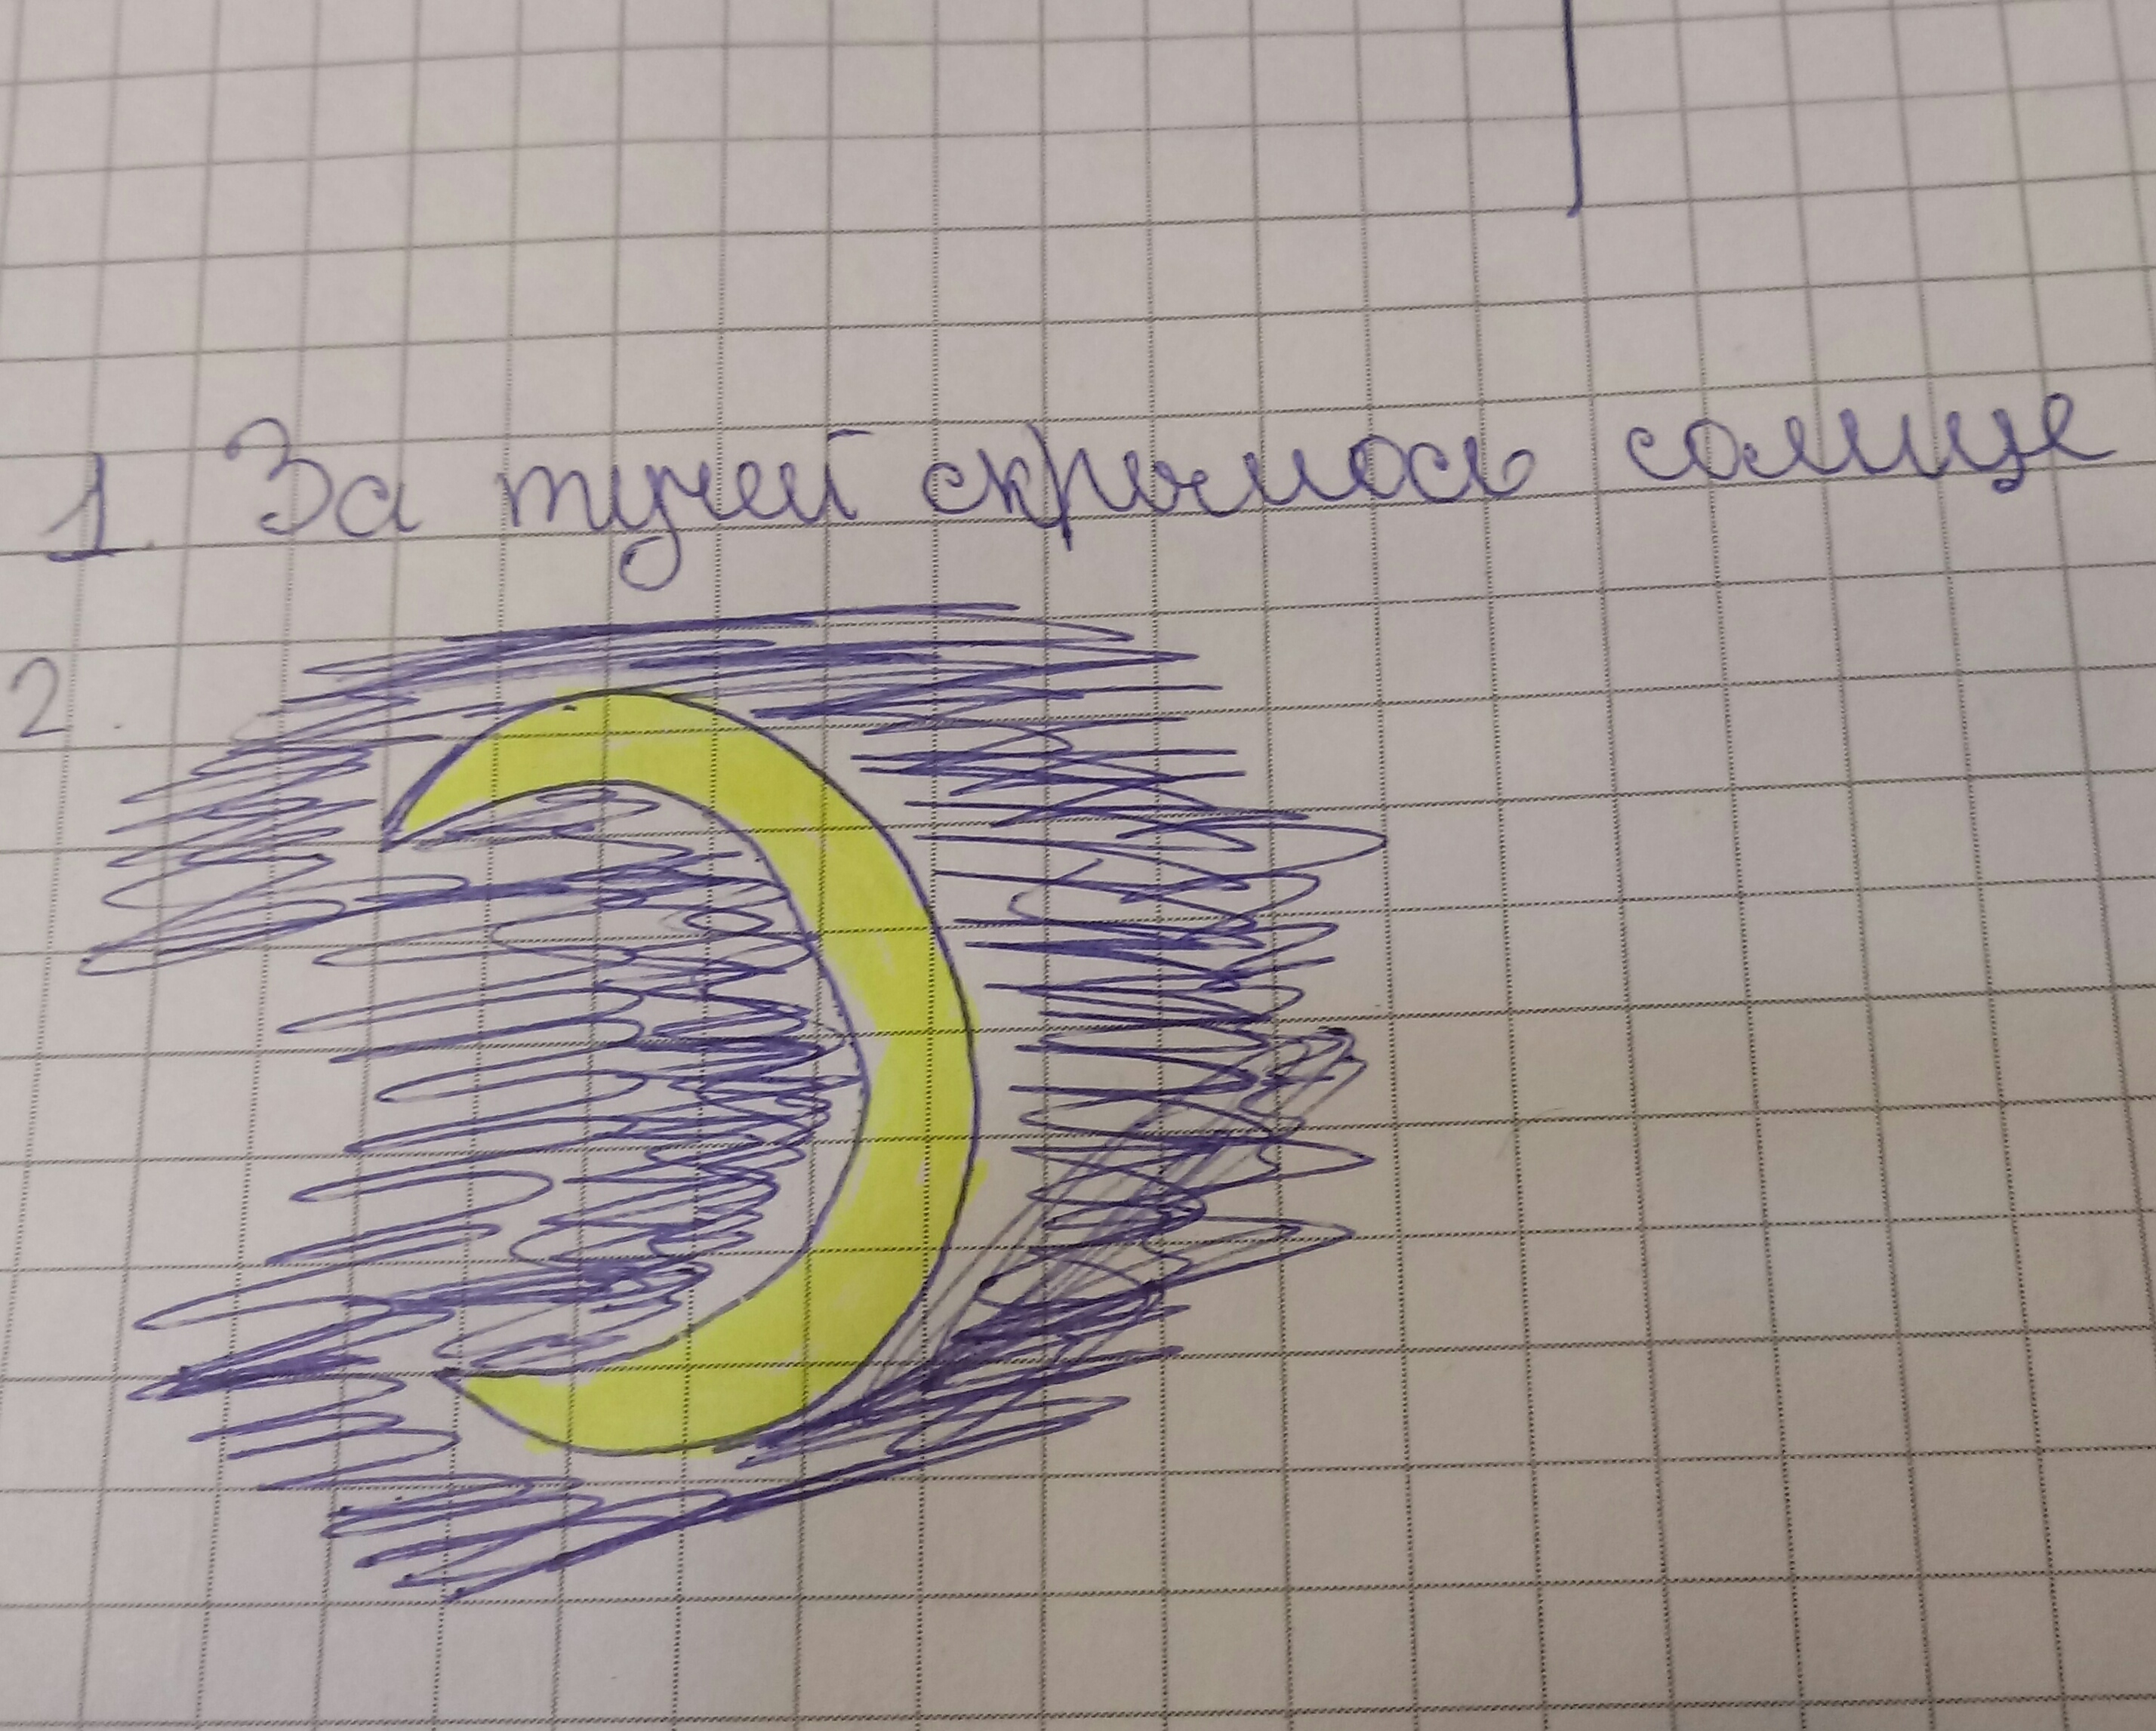 1. За тучей скрылось солнце
2.